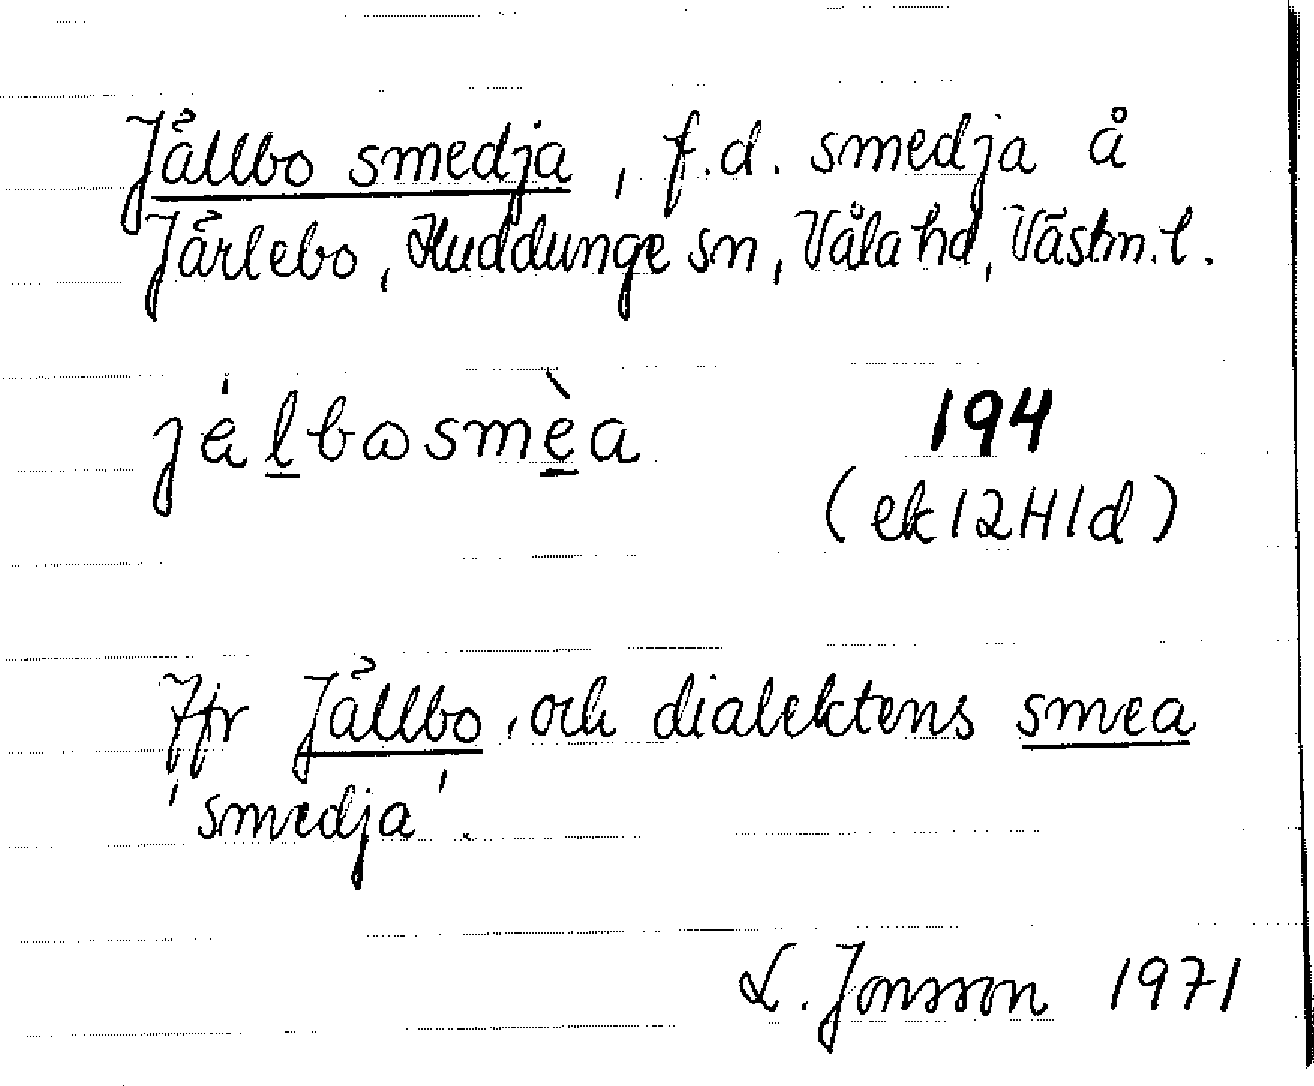 Jållbo smedja, f.d. smedja å
Jårlebo, Huddunge sn, Våla hd, Västm.l.
jálbosmèa 194
(ek12H1d)
Jfr Jållbo, och dialektens smea
'smedja'.
L. Jonsson 1971